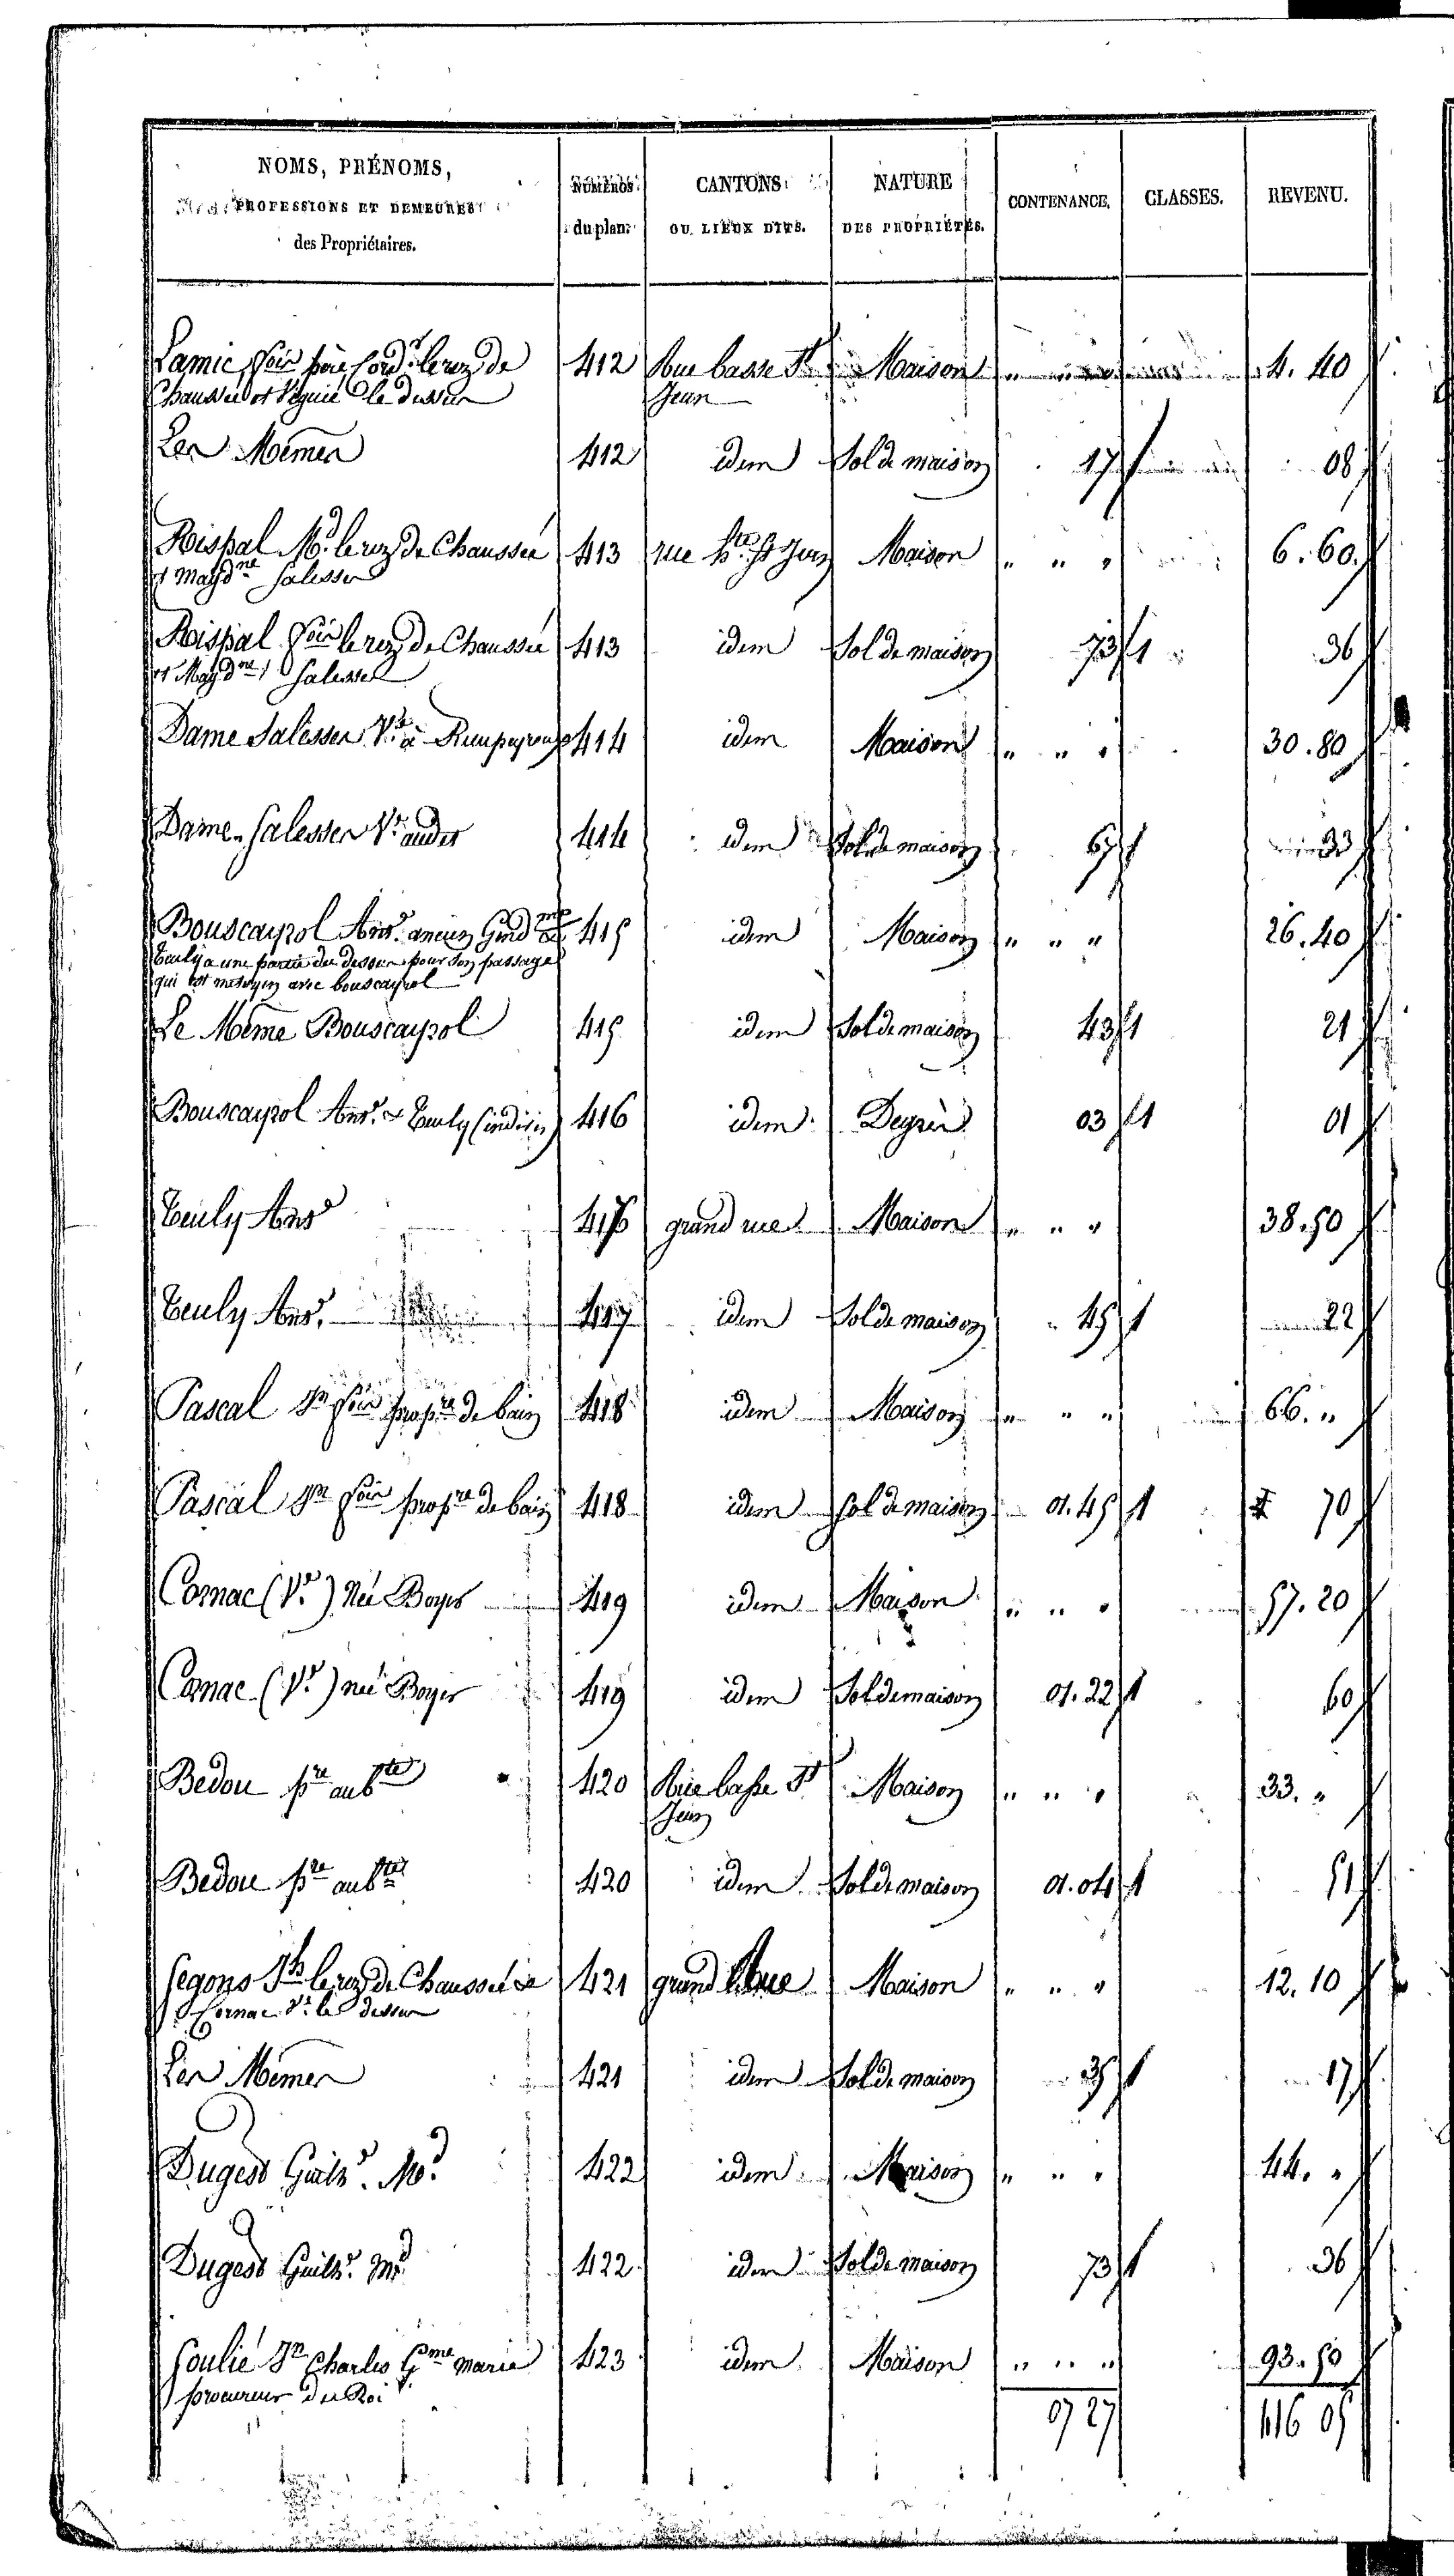 NOMS, PRÉNOMS,
PROFESSIONS ET DEMEURES
des Propriétaires.
NUMÉROS
du plan.
CANTONS
OU LIEUX DITS.
NATURE
DES PROPRIÉTÉS.
CONTENANCE.
CLASSES.
REVENU.
Lamic père Cordr le rez de 412 Rue basse St Maison 4. 40
Chaussée et le dessus Jean
Les Mêmes 412 idem Sol de maison 17 1 08
Rispal Md. le rez de Chaussée 413 rue hte St Jean Maison " " " 6. 60
et Magdne Salesses
Rispal le rez de Chaussée 413 idem Sol de maison 73 1 36
et Magdne Salesses
Dame Salesses Ve à Rimpeyroux 414 idem Maison " " " 30. 80
Dame Salesses Ve audit 414 idem Sol de maison 67 1 33
Bouscayrol Ante. ancien Gendme 415 idem Maison " " " 26. 40
Teuly a une partie du dessus pour son passage
qui est mitoyen avec bouscayrol
Le Même Bouscayrol 415 idem Sol de maison 43 1 21
Bouscayrol Ante. & Teuly (indivis) 416 idem Degrés 03 1 01
Teuly Ante 417 grand rue Maison " " " 38. 50
Teuly Ante. 417 idem Sol de maison 45 1 22
Pascal Jn propre de bain 418 idem Maison " " " 66. "
Pascal Jn propre de bain 418 idem Sol de maison 01. 45 1 70
Cornac (Ve) Née Boyer 419 idem Maison " " " 57. 20
Cornac (Ve) née Boyer 419 idem Sol de maison 01. 22 1 60
Bedou pre aubte 420 Rue basse St Maison " " " 33. "
Jean
Bedou pre aubte 420 idem Sol de maison 01. 04 1 51
Segons Jh le rez de Chaussée 421 grand Rue Maison " " " 12. 10
Cornac Ve le dessus
Les Mêmes 421 idem Sol de maison 35 1 17
Dugès Guilh. Md. 422 idem Maison " " " 44. "
Dugès Guilh. Md 422 idem Sol de maison 73 1 36
Soulié Jn Charles Gme Marie 423 idem Maison " " " 93. 50
procureur du Roi
07 27 416 05